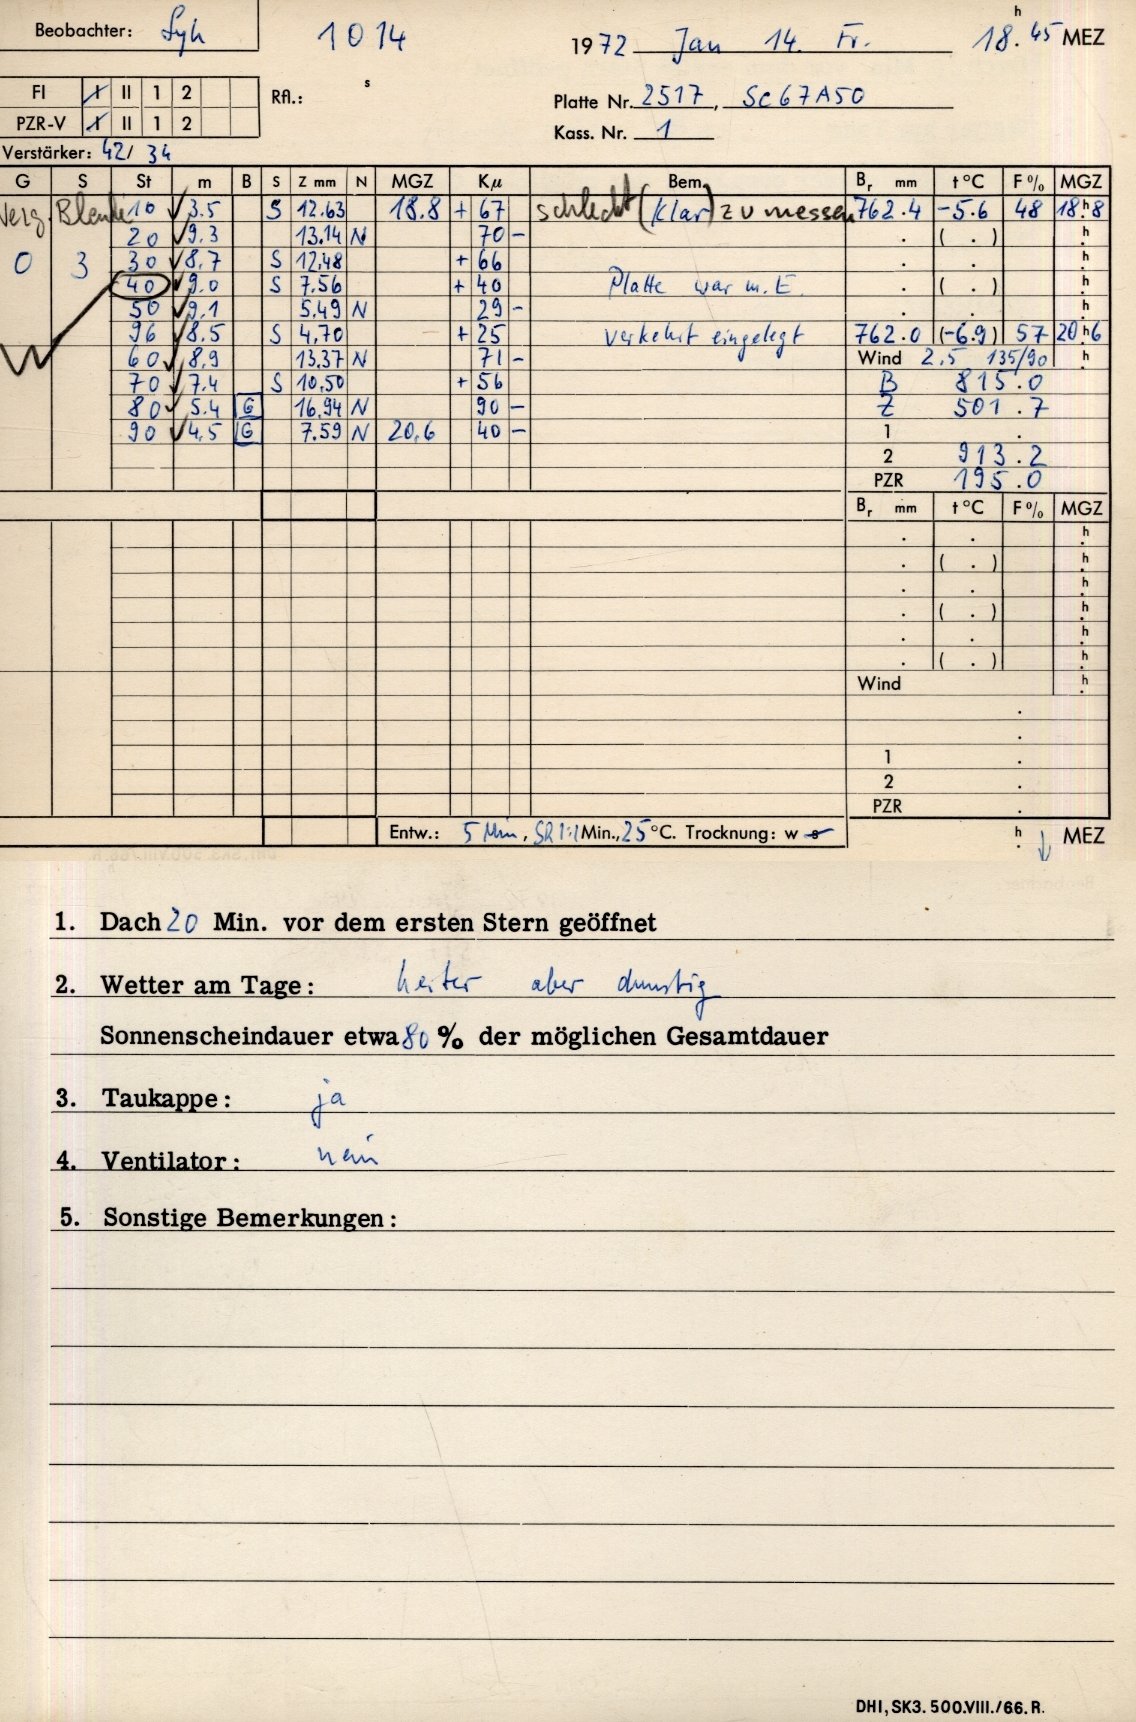 Beobachter: Syh 1014 1972 Jan 14. Fr. 18.h45 MEZ
FI I II 1 2 Rfl.: s Platte Nr. 2517, Sc67A50
PZR-V I II 1 2 Kass. Nr. 1
Verstärker: 42/34
G S St m B S Z mm N MGZ Kμ Bem. Br mm t°C F% MGZ
Verg. Blende 10 3.5 S 12.63 18.8 + 67 schlecht (klar) zu messen 762.4 -5.6 48 18.h8
20 9.3 13.14 N 70 - . ( . ) h
0 3 30 8,7 S 12,48 + 66 . . h
40 9.0 S 7.56 + 40 Platte war m. E. . ( . ) h
50 9,1 5.49 N 29 - . . h
96 8.5 S 4,70 + 25 verkehrt eingelegt 762.0 (-6.9) 57 20h6
60 8,9 13,37 N 71 - Wind 2.5 135/90 h
70 7.4 S 10,50 + 56 B 815.0
80 5.4 G 16.94 N 90 - Z 501.7
90 4,5 G 7.59 N 20,6 40 - 1 .
2 913.2
PZR 195.0
Br mm t°C F% MGZ
. . h
. ( . ) h
. . h
. ( . ) h
. . h
. ( . ) h
Wind h
.
.
1 .
2 .
PZR .
Entw.: 5 Min, SR 1:1 Min., 25°C. Trocknung: w s h MEZ
1. Dach 20 Min. vor dem ersten Stern geöffnet
2. Wetter am Tage: heiter aber dunstig
Sonnenscheindauer etwa 80 % der möglichen Gesamtdauer
3. Taukappe: ja
4. Ventilator: nein
5. Sonstige Bemerkungen:
DHI, SK3. 500.VIII./66. R.